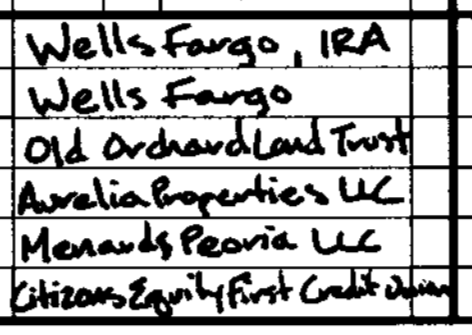 Wells Fargo, IRA
Wells Fargo
Old Orchard Land Trust
Aurelia Properties LLC
Menards Peoria LLC
Citizens Equity First Credit Union